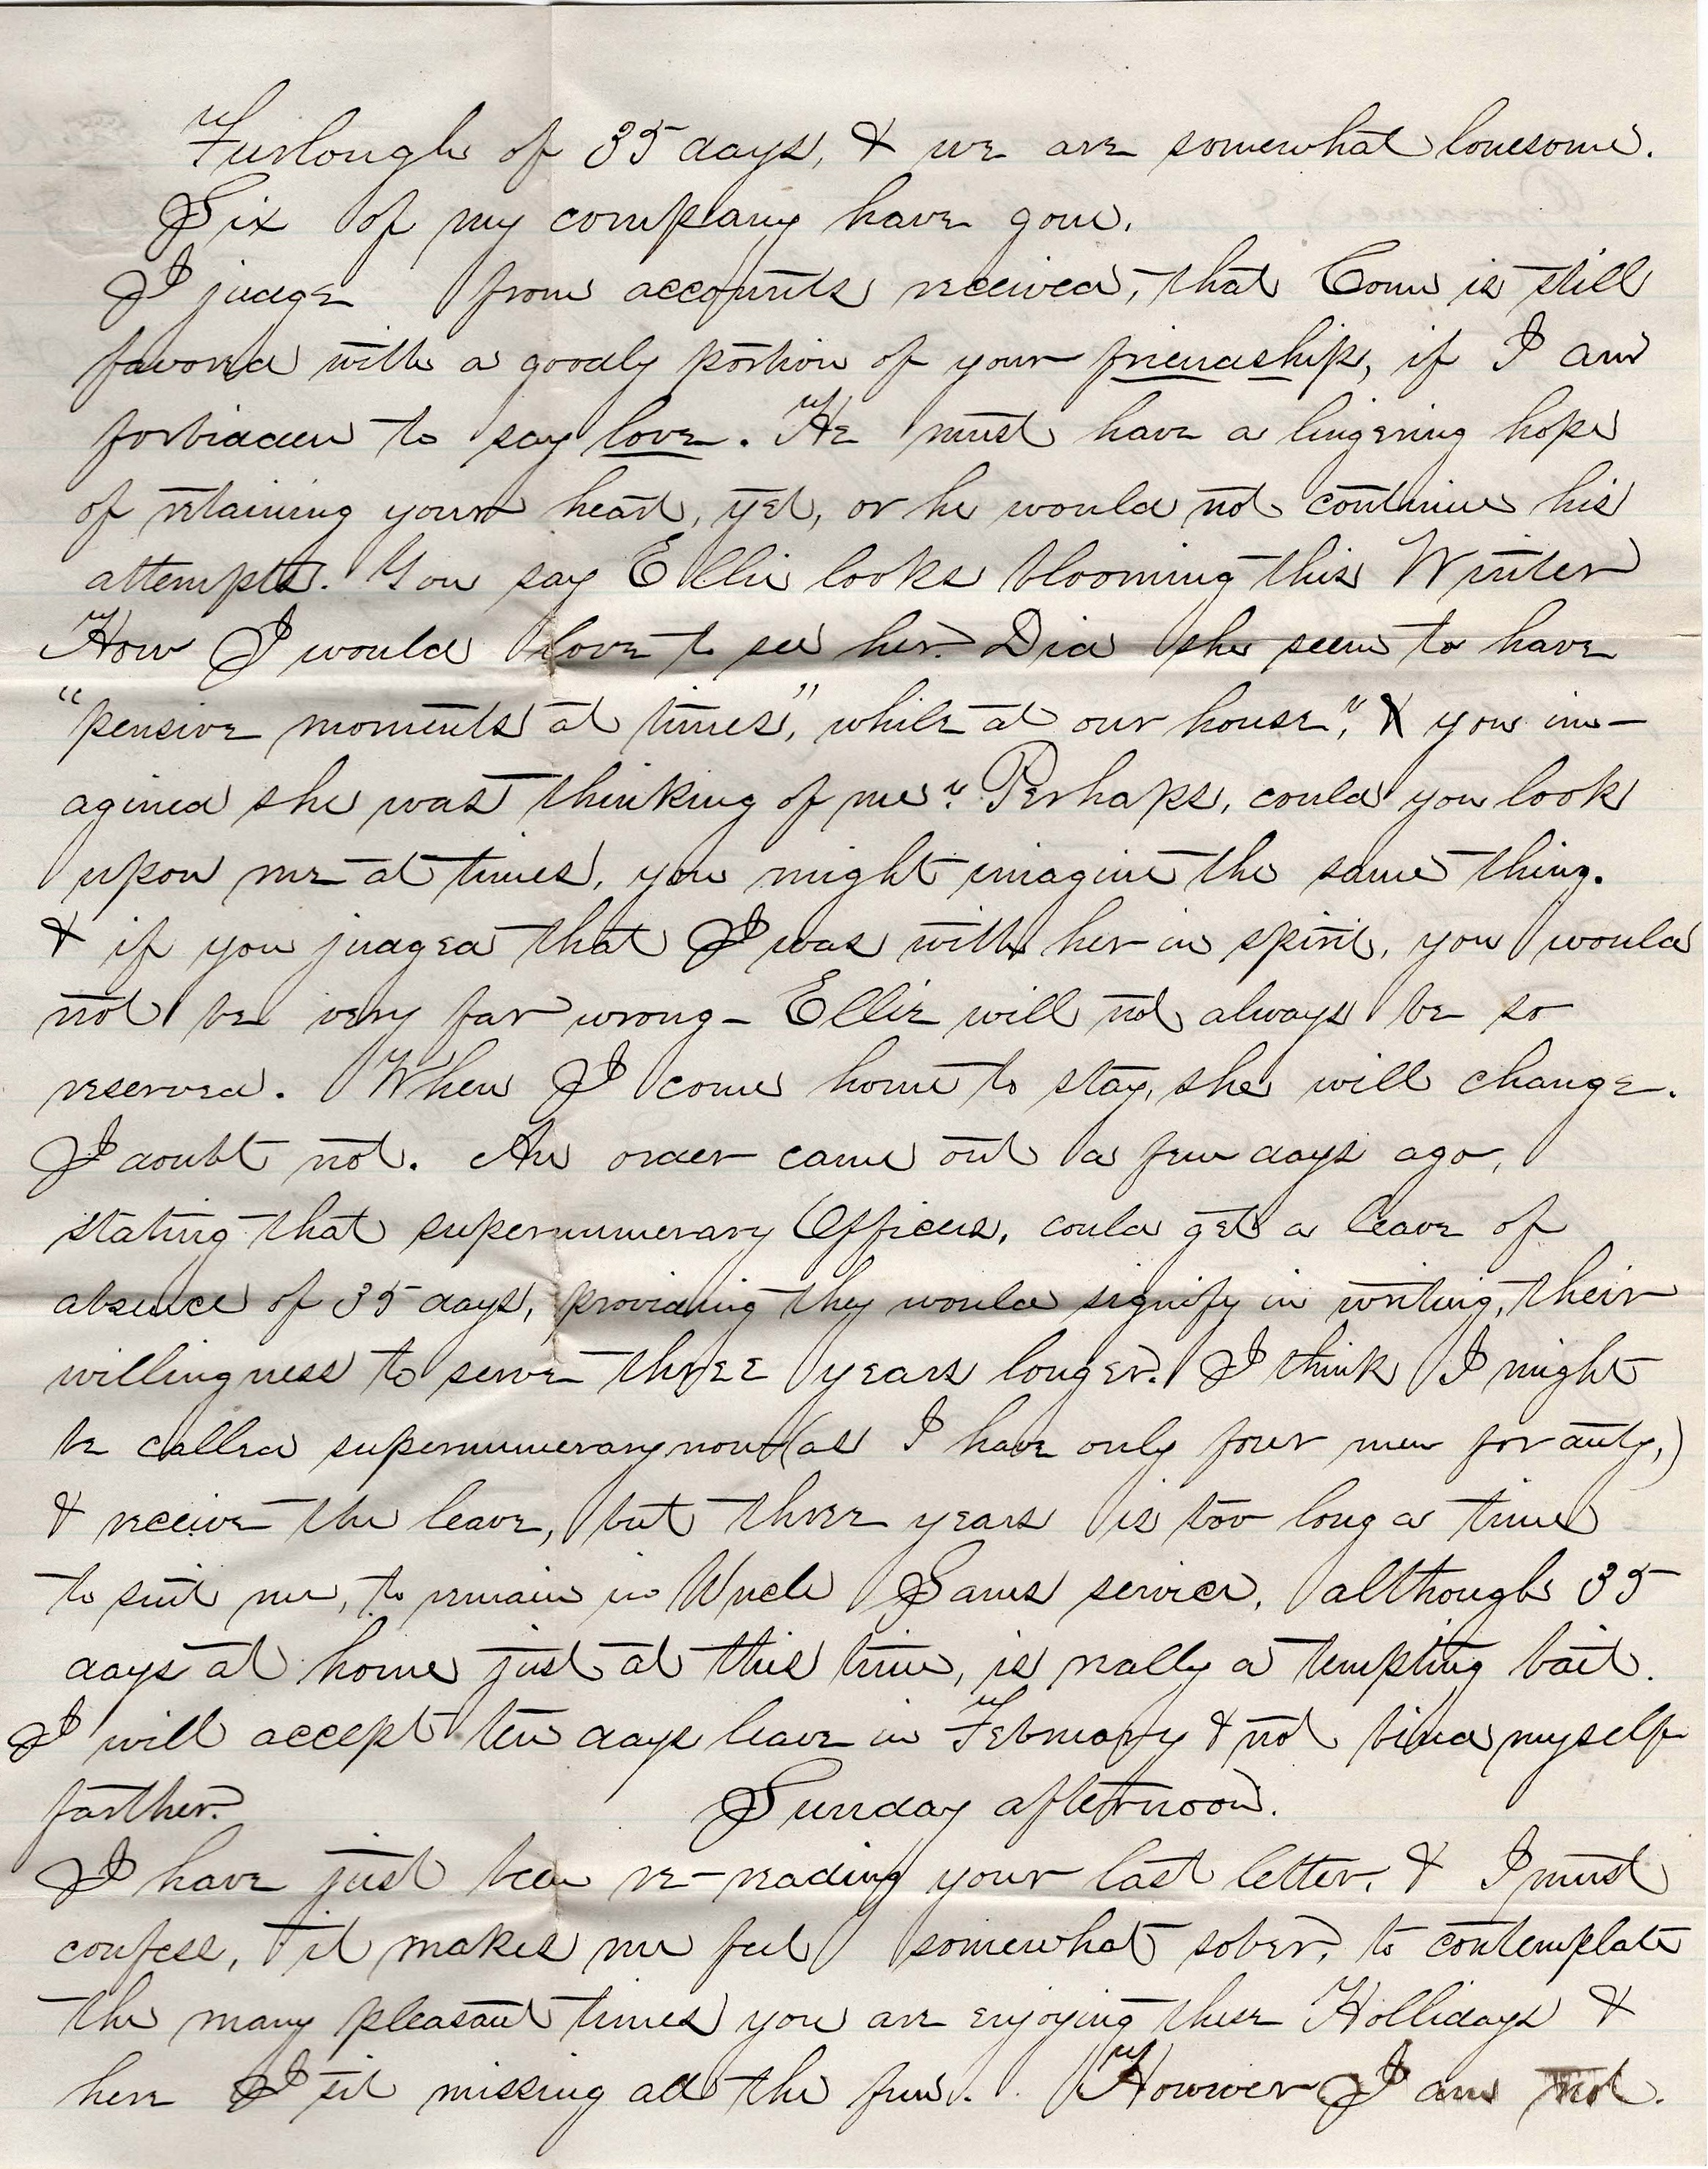 Furlough of 35 days, & we are somewhat lonesome.
Six of my company have gone.
I judge from accounts received, that Conn is still
favored with a goodly portion of your friendship, if I am
forbidden to say love. He must have a lingering hope
of retaining your heart, yet, or he would not continue his
attempts. You say Ellie looks blooming this Winter
How I would love to see her. Did she seem to have
"pensive moments at times", while at our house", & you im-
agined she was thinking of me"? Perhaps, could you look
upon me at times, you might imagine the same thing.
& if you judged that I was with her in spirit, you would
not be very far wrong - Ellie will not always be so
reserved. When I come home to stay, she will change.
I doubt not. An order came out a few days ago,
stating that supernumerary Officers, could get a leave of
absence of 35 days, providing they would signify in writing, their
willingness to serve three years longer. I think I might
be called supernumerary now (as I have only four men for duty,)
& receive the leave, but three years is too long a time
to suit me, to remain in Uncle Sams service, although 35
days at home just at this time, is really a tempting bait.
I will accept ten days leave in February & not bind myself
farther. Sunday afternoon.
I have just been re-reading your last letter, & I must
confess, it makes me feel somewhat sober, to contemplate
the many pleasant times you are enjoying these Hollidays &
here I sit missing all the fun. However I am not.